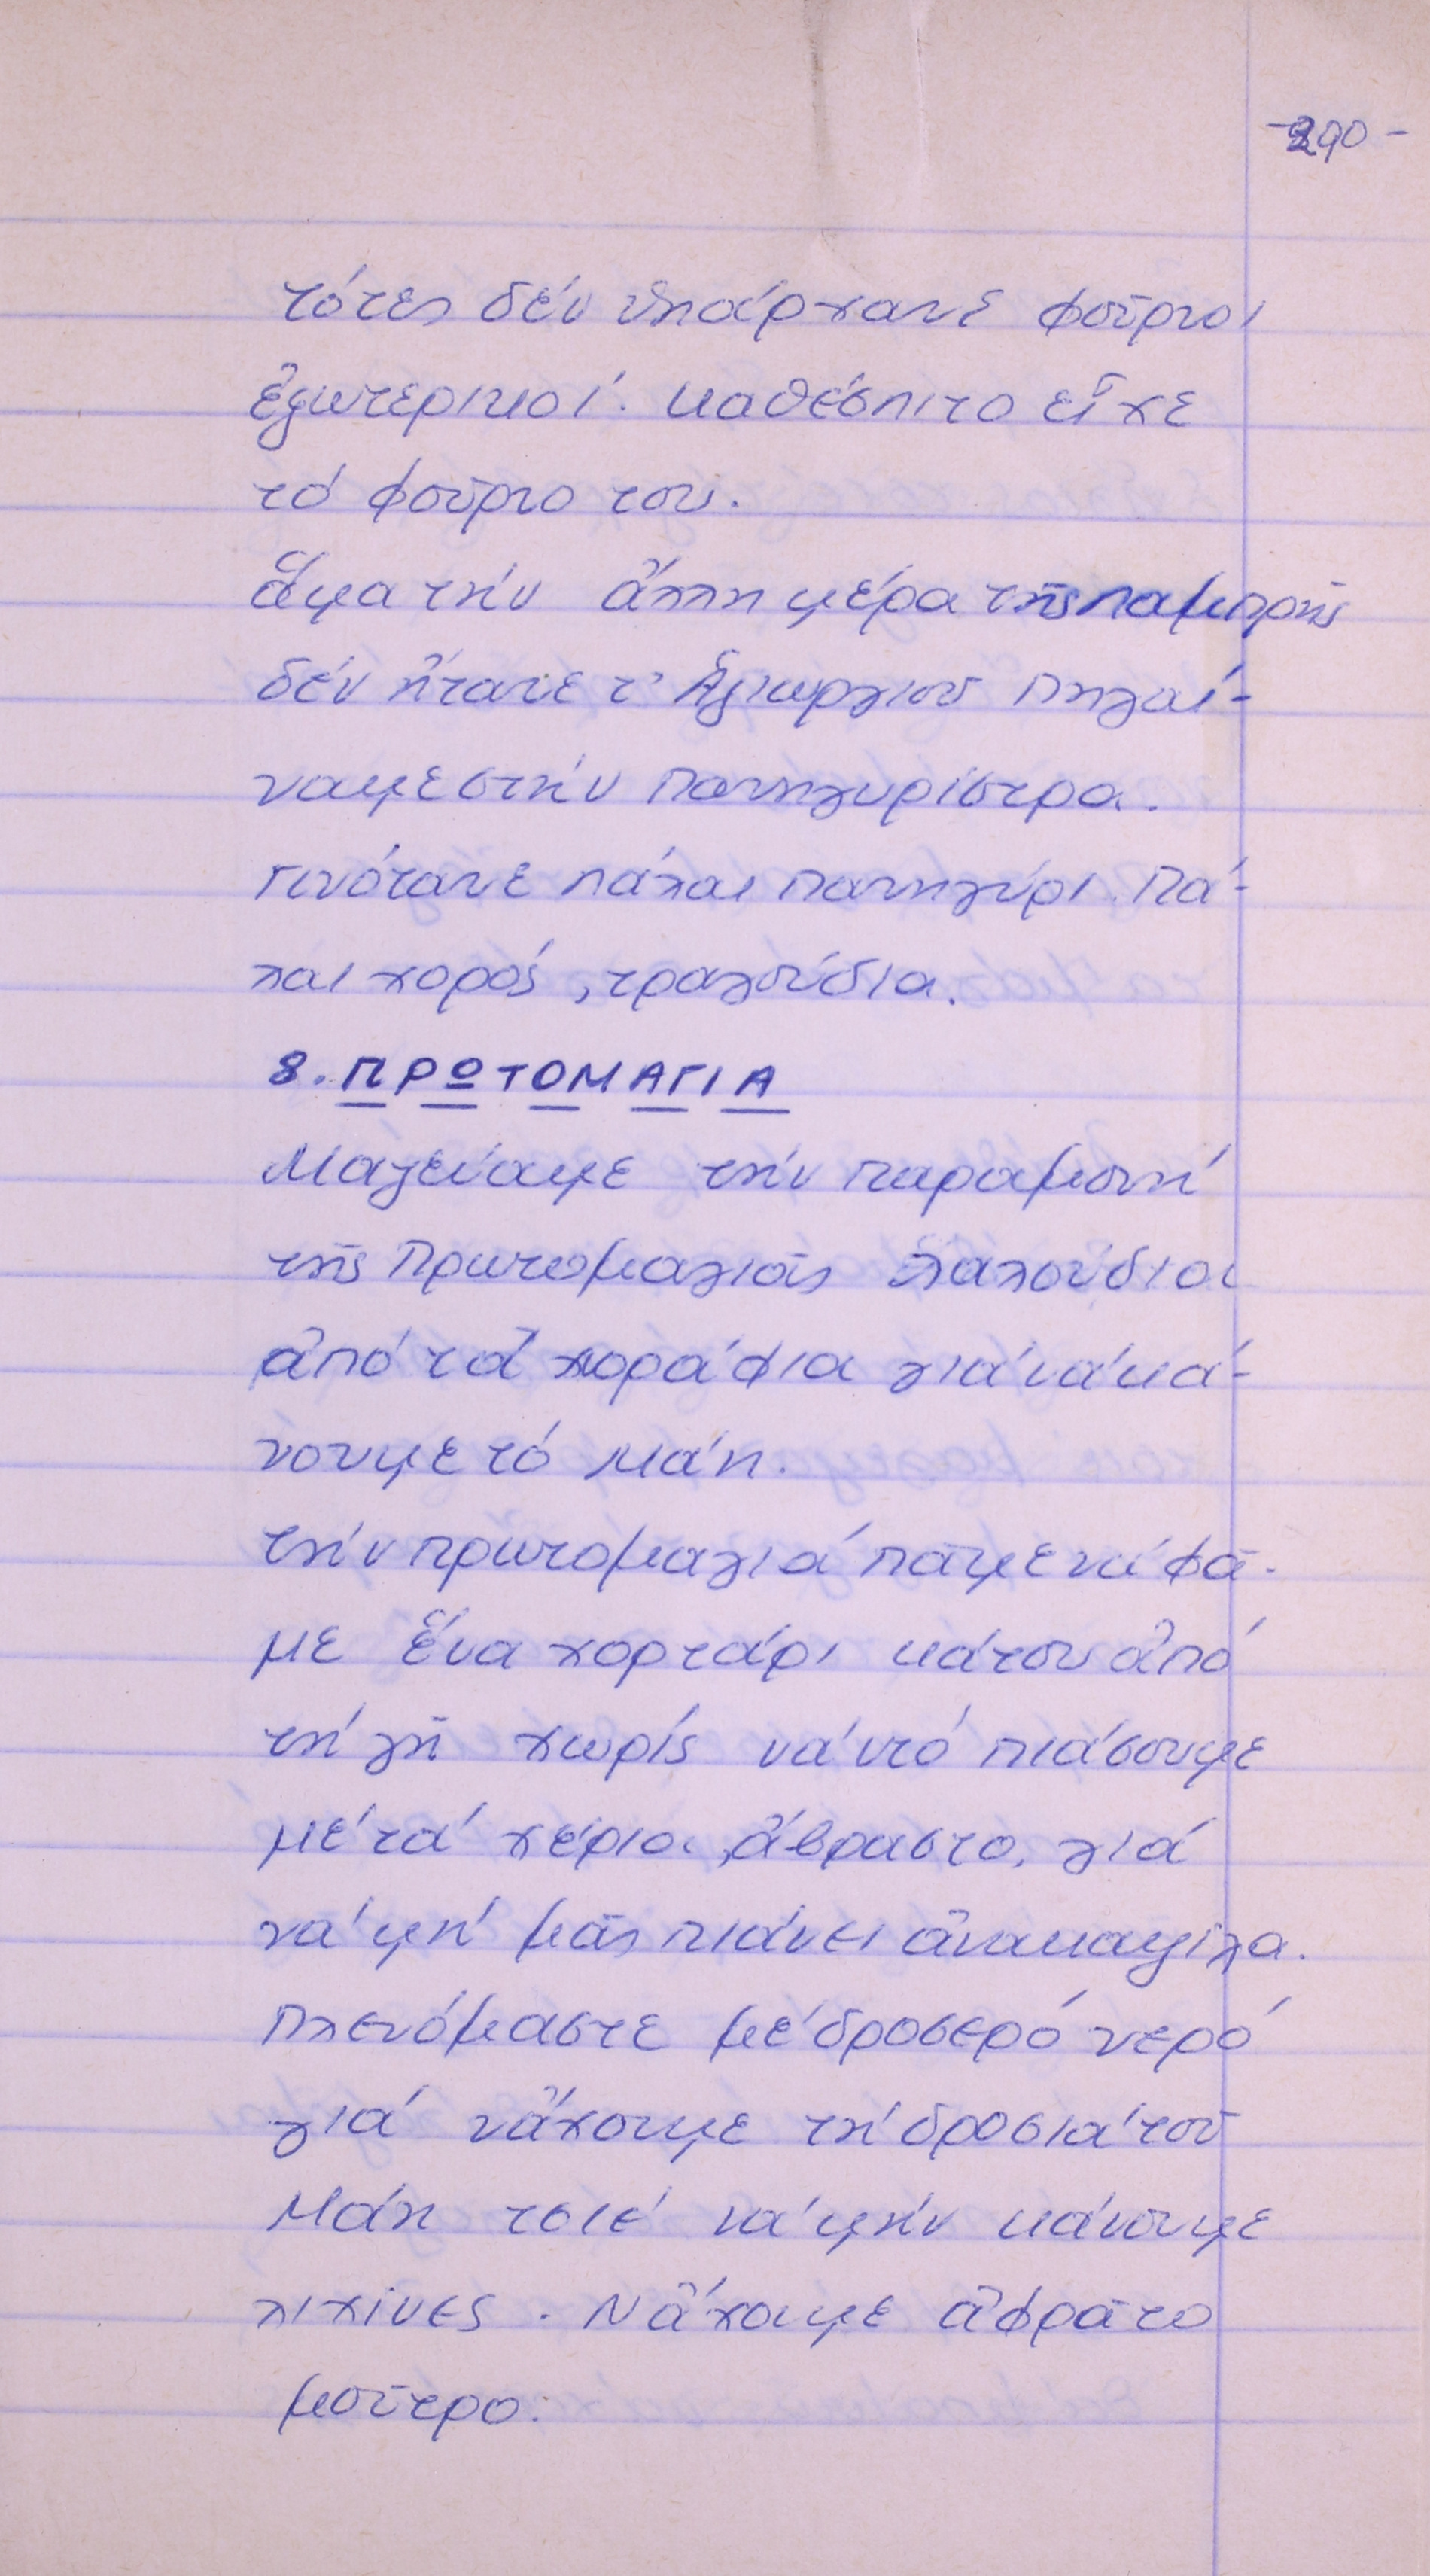 -290-
τότες δέν ὑπάρχανε φοῦρνοι
ἐξωτερικοί. καθέσπιτο εἶχε
τό φοῦρνο του.
ἅμα τήν ἄλλη μέρα τῆς λαμπρῆς
δέν ἤτανε τ' Ἁγιωργιοῦ πηγαί-
ναμε στήν Πανηγυρίστρα.
Γινότανε πάλαι πανηγύρι. Πά-
λαι χορός, τραγούδια.
8. ΠΡΩΤΟΜΑΓΙΑ
Μαζεύαμε τήν παραμονή
τῆς Πρωτομαγιᾶς λαλούδια
ἀπό τά χοράφια γιά νά κά-
νουμε τό Μάη.
τήν πρωτομαγιά πᾶμε νά φᾶ-
με ἕνα χορτάρι κάτου ἀπό
τή γῆ χωρίς νά ντό πιάσουμε
μέ τά χέρια, ἄβραστο, γιά
νά μή μᾶς πιάνει ἀνακαψίλα.
Πλενόμαστε μέ δροσερό νερό
γιά νἄχουμε τή δροσιά τοῦ
Μάη τσιέ νά μήν κάνουμε
λιχίνες. Νἄχουμε ἀφρᾶτο
μοῦτρο.